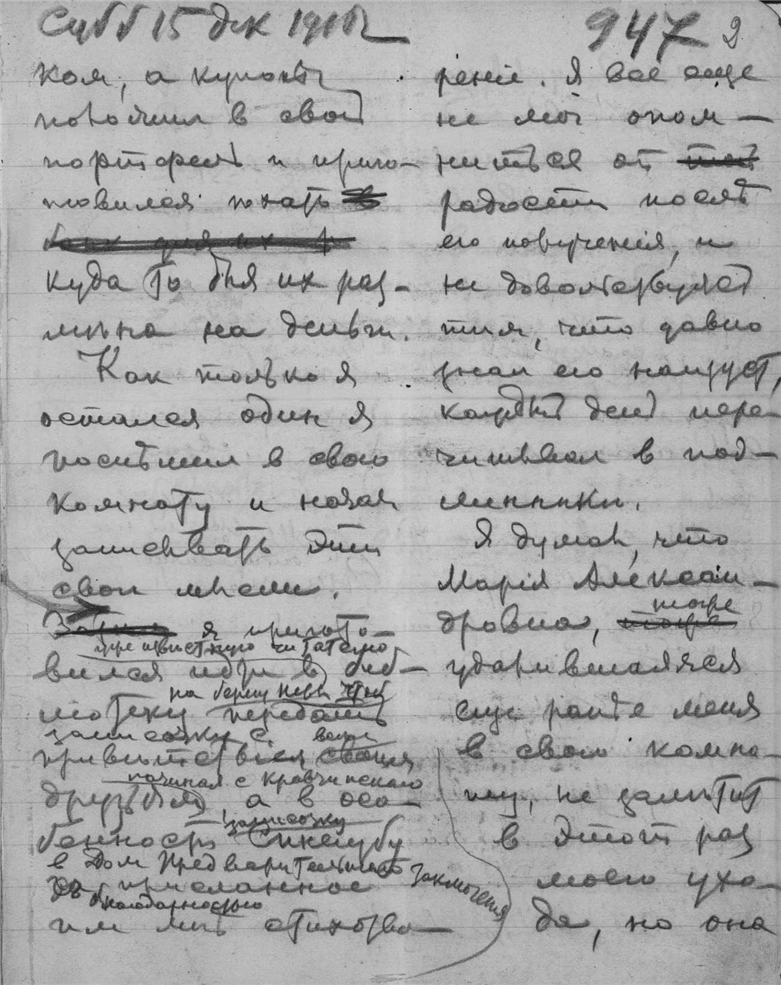 Субб 15 дек 1918 г
947 2
ком, а купоны
положил в свой
портфель и приго-
товился ехать
куда то для их раз-
мѣна на деньги.
Как только я
остался один я
поспѣшил в свою
комнату и начал
записывать эти
свои мысли.
я пригото-
вился идти в биб-
лиотеку передать
записочку с
привѣтствием
начиная с Кравчинскаго
друзьям, а в осо-
бенности Синегубу
записочку
в Дом Предварительнаго Заключения
за присланное
с благодарностью
им мнѣ стихотво-
реніе. Я все еще
не мог опом-
ниться от
радости послѣ
его получения, и
не довольствуясь
тѣм, что давно
знал его наизуст,
каждый день пере-
читывал в под-
линникѣ.
Я думал, что
Марія Алексан-
дровна, тоже
удалившаяся
еще раньше меня
в свою комна-
ту, не замѣтит
в этот раз
моего ухо-
да, но она